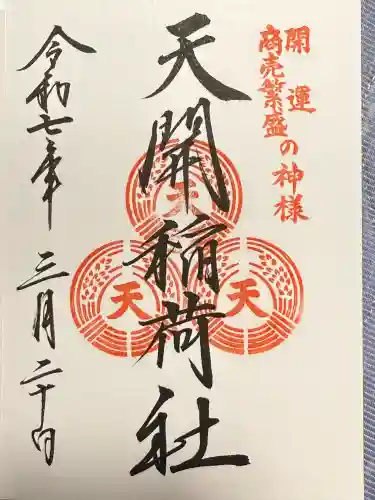 開運
商売繁盛の神様
天開稲荷社
令和七年 三月二十日
天
天
天